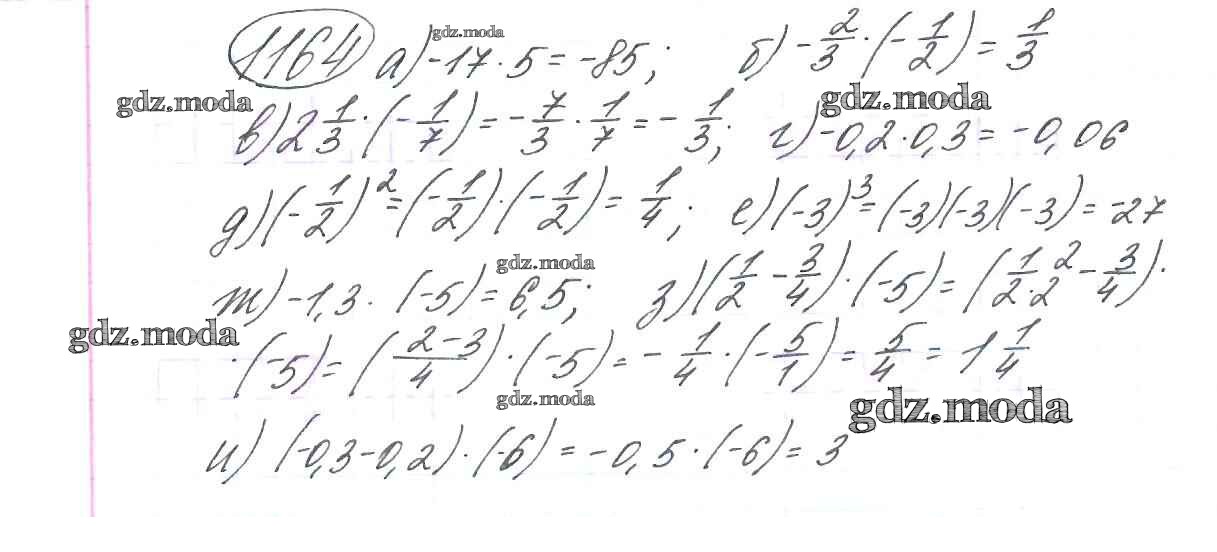 1164 а) -17 · 5 = -85; б) -2/3 · (-1/2) = 1/3
gdz.moda
gdz.moda gdz.moda
в) 2 1/3 · (-1/7) = -7/3 · 1/7 = -1/3; г) -0,2 · 0,3 = -0,06
д) (-1/2)² = (-1/2) · (-1/2) = 1/4; е) (-3)³ = (-3)(-3)(-3) = -27
gdz.moda
ж) -1,3 · (-5) = 6,5; з) (1/2 - 3/4) · (-5) = (1/2·2 ² - 3/4) ·
gdz.moda
· (-5) = (2-3/4) · (-5) = -1/4 · (-5/1) = 5/4 = 1 1/4
gdz.moda gdz.moda
и) (-0,3-0,2) · (-6) = -0,5 · (-6) = 3